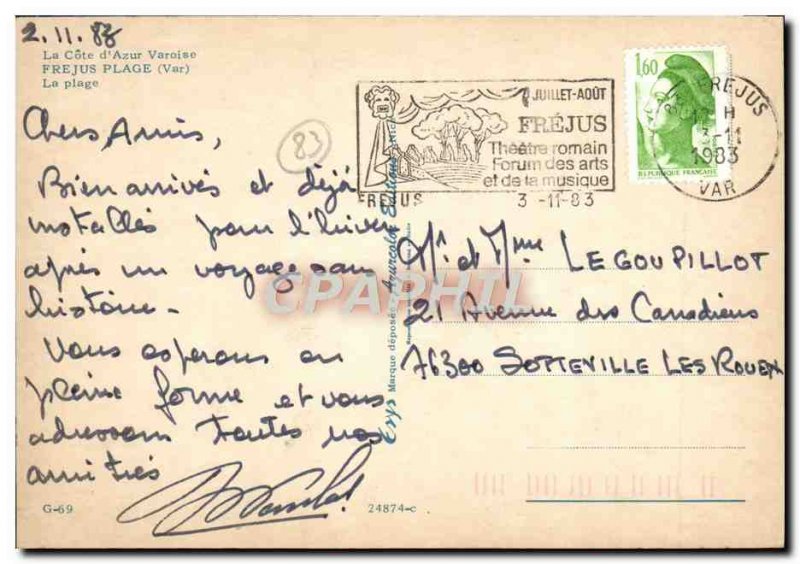 2.11.83
La Côte d'Azur Varoise
FREJUS PLAGE (Var)
La plage
Chers Amis,
83
Bien arrivés et déjà
installés pour l'hiver
après un voyage sans
histoire.
Vous espérons en
pleine forme et vous
adressons toutes nos
amitiés
G-69
24874-c
JUILLET-AOÛT
FRÉJUS
Théâtre romain
Forum des arts
et de la musique
FREJUS
3 -11-83
1,60
REPUBLIQUE FRANÇAISE
FREJUS
H
3-11
1983
VAR
Mr et Mme LEGOUPILLOT
21 Avenue des Canadiens
76300 SOTTEVILLE LES ROUEN
Marque déposée
CPAPHIL